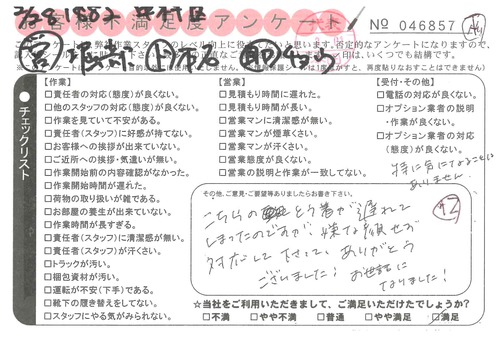 お客様不満足度アンケート
No 046857
チェックリスト
【作業】
□責任者の対応(態度)が良くない。
□他のスタッフの対応(態度)が良くない。
□作業を見ていて不安がある。
□責任者(スタッフ)に好感が持てない。
□お客様への挨拶が出来ていない。
□ご近所への挨拶・気遣いが無い。
□作業開始前の内容確認がなかった。
□作業開始時間が遅れた。
□荷物の取り扱いが雑である。
□お部屋の養生が出来ていない。
□作業時間が長すぎる。
□責任者(スタッフ)に清潔感が無い。
□責任者(スタッフ)が汗くさい。
□トラックが汚い。
□梱包資材が汚い。
□運転が不安(下手)である。
□靴下の履き替えをしてない。
□スタッフにやる気がみられない。
【営業】
□見積もり時間に遅れた。
□見積もり時間が長い。
□営業マンに清潔感が無い。
□営業マンが煙草くさい。
□営業マンが汗くさい。
□営業態度が良くない。
□営業の説明と作業が一致してない。
【受付・その他】
□電話の対応が良くない。
□オプション業者の説明
・作業が良くない。
□オプション業者の対応
(態度)が良くない。
特に気になることは
ありません
その他、ご意見・ご要望等ありましたらお書き下さい。
こちらの とう着が遅れて
しまったのですが 嫌な顔せず
対応して下さって、ありがとう
ございました! お世話に
なりました!
12
☆当社をご利用いただきまして、ご満足いただけたでしょうか?
□不満 □やや不満 □普通 □やや満足 □満足